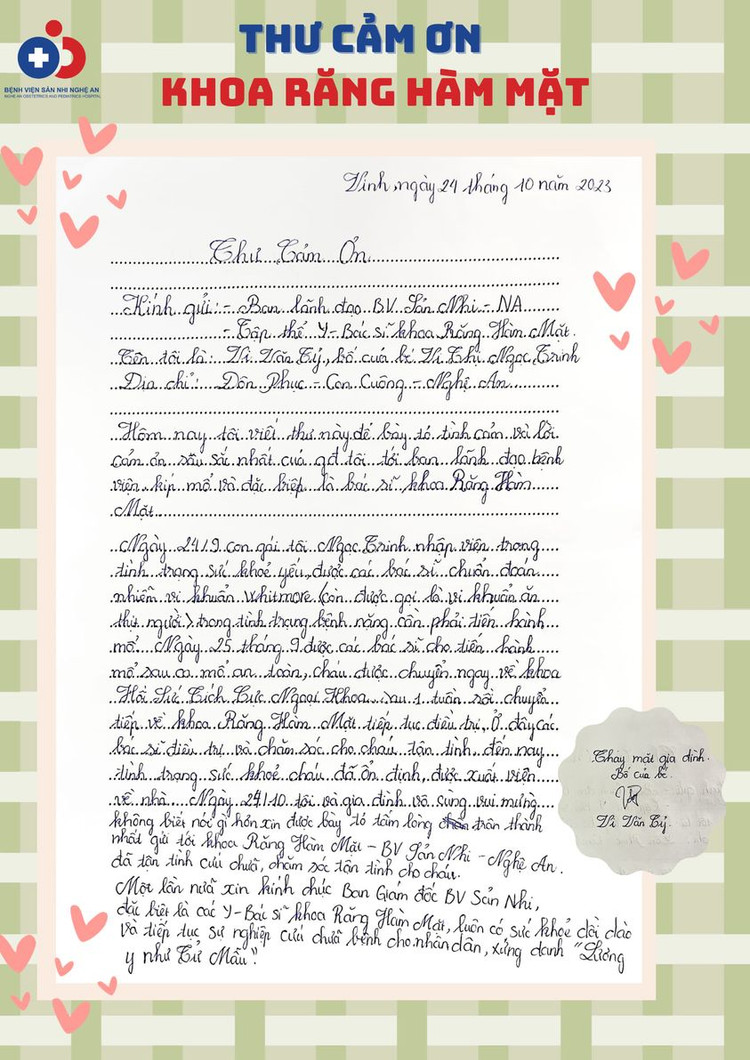 THƯ CẢM ƠN
KHOA RĂNG HÀM MẶT
BỆNH VIỆN SẢN NHI NGHỆ AN
NGHE AN OBSTETRICS AND PEDIATRICS HOSPITAL
Vinh, ngày 24 tháng 10 năm 2023
Thư Cảm Ơn
Kính gửi: - Ban lãnh đạo BV Sản Nhi - NA
- Tập thể Y-Bác sĩ khoa Răng Hàm Mặt.
Tên tôi là: Vi Văn Tỷ, bố của bé Vi Thị Ngọc Trinh
Địa chỉ: Đôn Phục - Con Cuông - Nghệ An
Hôm nay tôi viết thư này để bày tỏ tình cảm và lời
cảm ơn sâu sắc nhất của gđ tôi tới ban lãnh đạo bệnh
viện, kíp mổ và đặc biệt là bác sĩ khoa Răng Hàm
Mặt
Ngày 24/9 con gái tôi Ngọc Trinh nhập viện trong
tình trạng sức khoẻ yếu, được các bác sĩ chuẩn đoán
nhiễm vi khuẩn whitmore (còn được gọi là vi khuẩn ăn
thịt người) trong tình trạng bệnh nặng cần phải tiến hành
mổ. Ngày 25 tháng 9 được các bác sĩ cho tiến hành
mổ sau ca mổ an toàn, cháu được chuyển ngay về khoa
Hồi Sức Tích Cực Ngoại Khoa sau 1 tuần rồi chuyển
tiếp về khoa Răng Hàm Mặt tiếp tục điều trị, Ở đây các
bác sĩ điều trị và chăm sóc cho cháu tận tình, đến nay
tình trạng sức khoẻ cháu đã ổn định, được xuất viện
về nhà. Ngày 24/10 tôi và gia đình vô cùng vui mừng
không biết nói gì hơn xin được bày tỏ tấm lòng chân thành
nhất gửi tới khoa Răng Hàm Mặt - BV Sản Nhi - Nghệ An.
đã tận tình cứu chữa, chăm sóc tận tình cho cháu.
Một lần nữa xin kính chúc Ban Giám đốc BV Sản Nhi,
đặc biệt là các Y-Bác sĩ khoa Răng Hàm Mặt, luôn có sức khoẻ dồi dào
và tiếp tục sự nghiệp cứu chữa bệnh cho nhân dân, xứng danh "Lương
y như Từ Mẫu".
Thay mặt gia đình.
Bố của bé.
Vi Văn Tỷ.